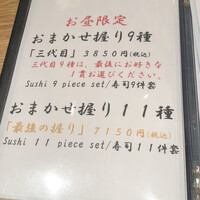 お昼限定
おまかせ握り9種
「三代目」3850円(税込)
三代目9種は、最後にお好きな
1貫お選びください。
Sushi 9 piece set/寿司9件套
おまかせ握り11種
「最強の握り」7150円(税込)
Sushi 11 piece set/寿司11件套